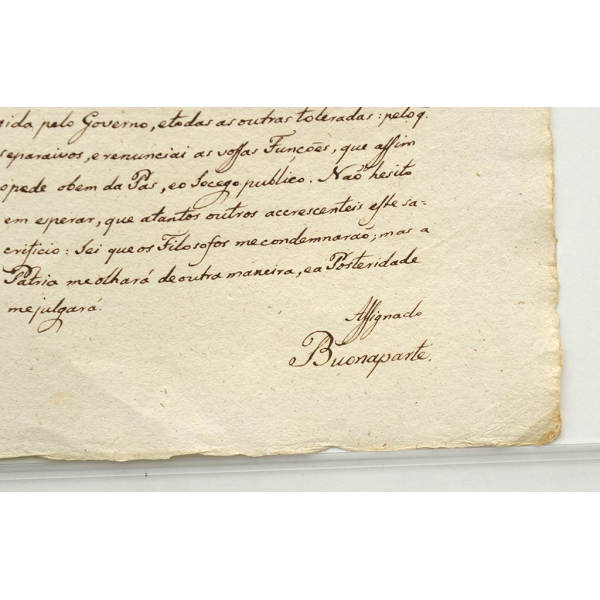 gida pelo Governo, e todas as outras toleradas: pelo q.
separaivos, e renunciai as vossas Funcões, que assim
o pede o bem da Pás, e o Socego publico. Naõ hesito
em esperar, que a tantos outros accrescenteis este sa-
crificio: Sei que os Filosofos me condemnaraõ; mas a
Patria me olhará de outra maneira, e a Posteridade
me julgará.
Assignado
Buonaparte.